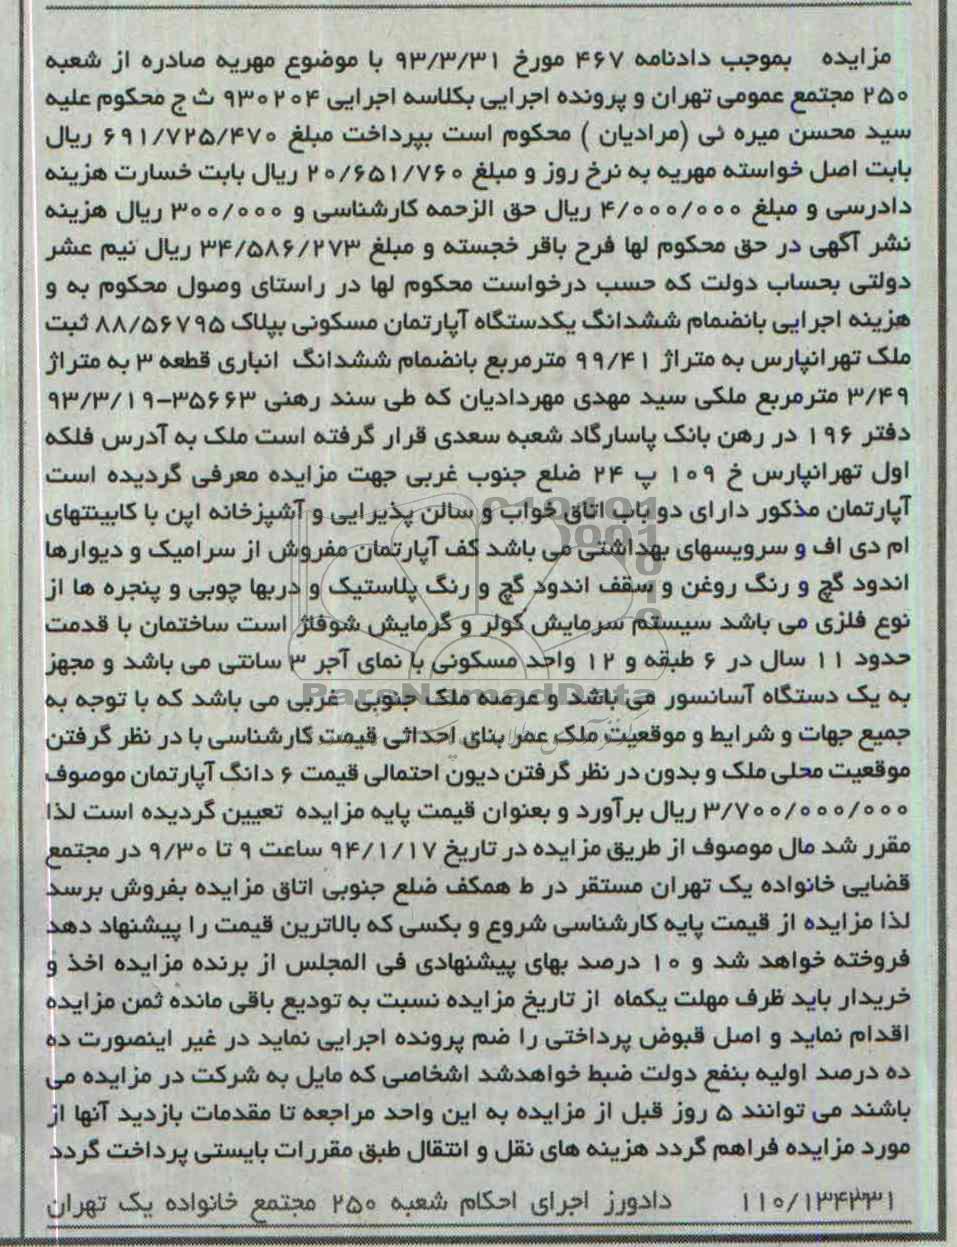 مزایده بموجب دادنامه ۴۶۷ مورخ ۹۳/۳/۳۱ با موضوع مهریه صادره از شعبه
۲۵۰ مجتمع عمومی تهران و پرونده اجرایی بکلاسه اجرایی ۹۳۰۲۰۴ ث ج محکوم علیه
سید محسن میره ئی (مرادیان ) محکوم است بپرداخت مبلغ ۶۹۱/۷۲۵/۴۷۰ ریال
بابت اصل خواسته مهریه به نرخ روز و مبلغ ۲۰/۶۵۱/۷۶۰ ریال بابت خسارت هزینه
دادرسی و مبلغ ۴/۰۰۰/۰۰۰ ریال حق الزحمه کارشناسی و ۳۰۰/۰۰۰ ریال هزینه
نشر آگهی در حق محکوم لها فرح باقر خجسته و مبلغ ۳۴/۵۸۶/۲۷۳ ریال نیم عشر
دولتی بحساب دولت که حسب درخواست محکوم لها در راستای وصول محکوم به و
هزینه اجرایی بانضمام ششدانگ یکدستگاه آپارتمان مسکونی بپلاک ۸۸/۵۶۷۹۵ ثبت
ملک تهرانپارس به متراژ ۹۹/۴۱ مترمربع بانضمام ششدانگ انباری قطعه ۳ به متراژ
۳/۴۹ مترمربع ملکی سید مهدی مهردادیان که طی سند رهنی ۳۵۶۶۳-۹۳/۳/۱۹
دفتر ۱۹۶ در رهن بانک پاسارگاد شعبه سعدی قرار گرفته است ملک به آدرس فلکه
اول تهرانپارس خ ۱۰۹ پ ۲۴ ضلع جنوب غربی جهت مزایده معرفی گردیده است
آپارتمان مذکور دارای دو باب اتاق خواب و سالن پذیرایی و آشپزخانه اپن با کابینتهای
ام دی اف و سرویسهای بهداشتی می باشد کف آپارتمان مفروش از سرامیک و دیوارها
اندود گچ و رنگ روغن و سقف اندود گچ و رنگ پلاستیک و دربها چوبی و پنجره ها از
نوع فلزی می باشد سیستم سرمایش کولر و گرمایش شوفاژ است ساختمان با قدمت
حدود ۱۱ سال در ۶ طبقه و ۱۲ واحد مسکونی با نمای آجر ۳ سانتی می باشد و مجهز
به یک دستگاه آسانسور می باشد و عرصه ملک جنوبی غربی می باشد که با توجه به
جمیع جهات و شرایط و موقعیت ملک عمر بنای احداثی قیمت کارشناسی با در نظر گرفتن
موقعیت محلی ملک و بدون در نظر گرفتن دیون احتمالی قیمت ۶ دانگ آپارتمان موصوف
۳/۷۰۰/۰۰۰/۰۰۰ ریال برآورد و بعنوان قیمت پایه مزایده تعیین گردیده است لذا
مقرر شد مال موصوف از طریق مزایده در تاریخ ۹۴/۱/۱۷ ساعت ۹ تا ۹/۳۰ در مجتمع
قضایی خانواده یک تهران مستقر در ط همکف ضلع جنوبی اتاق مزایده بفروش برسد
لذا مزایده از قیمت پایه کارشناسی شروع و بکسی که بالاترین قیمت را پیشنهاد دهد
فروخته خواهد شد و ۱۰ درصد بهای پیشنهادی فی المجلس از برنده مزایده اخذ و
خریدار باید ظرف مهلت یکماه از تاریخ مزایده نسبت به تودیع باقی مانده ثمن مزایده
اقدام نماید و اصل قبوض پرداختی را ضم پرونده اجرایی نماید در غیر اینصورت ده
ده درصد اولیه بنفع دولت ضبط خواهدشد اشخاصی که مایل به شرکت در مزایده می
باشند می توانند ۵ روز قبل از مزایده به این واحد مراجعه تا مقدمات بازدید آنها از
مورد مزایده فراهم گردد هزینه های نقل و انتقال طبق مقررات بایستی پرداخت گردد
۱۱۰/۱۳۴۲۳۱ دادورز اجرای احکام شعبه ۲۵۰ مجتمع خانواده یک تهران
ParsNamadData